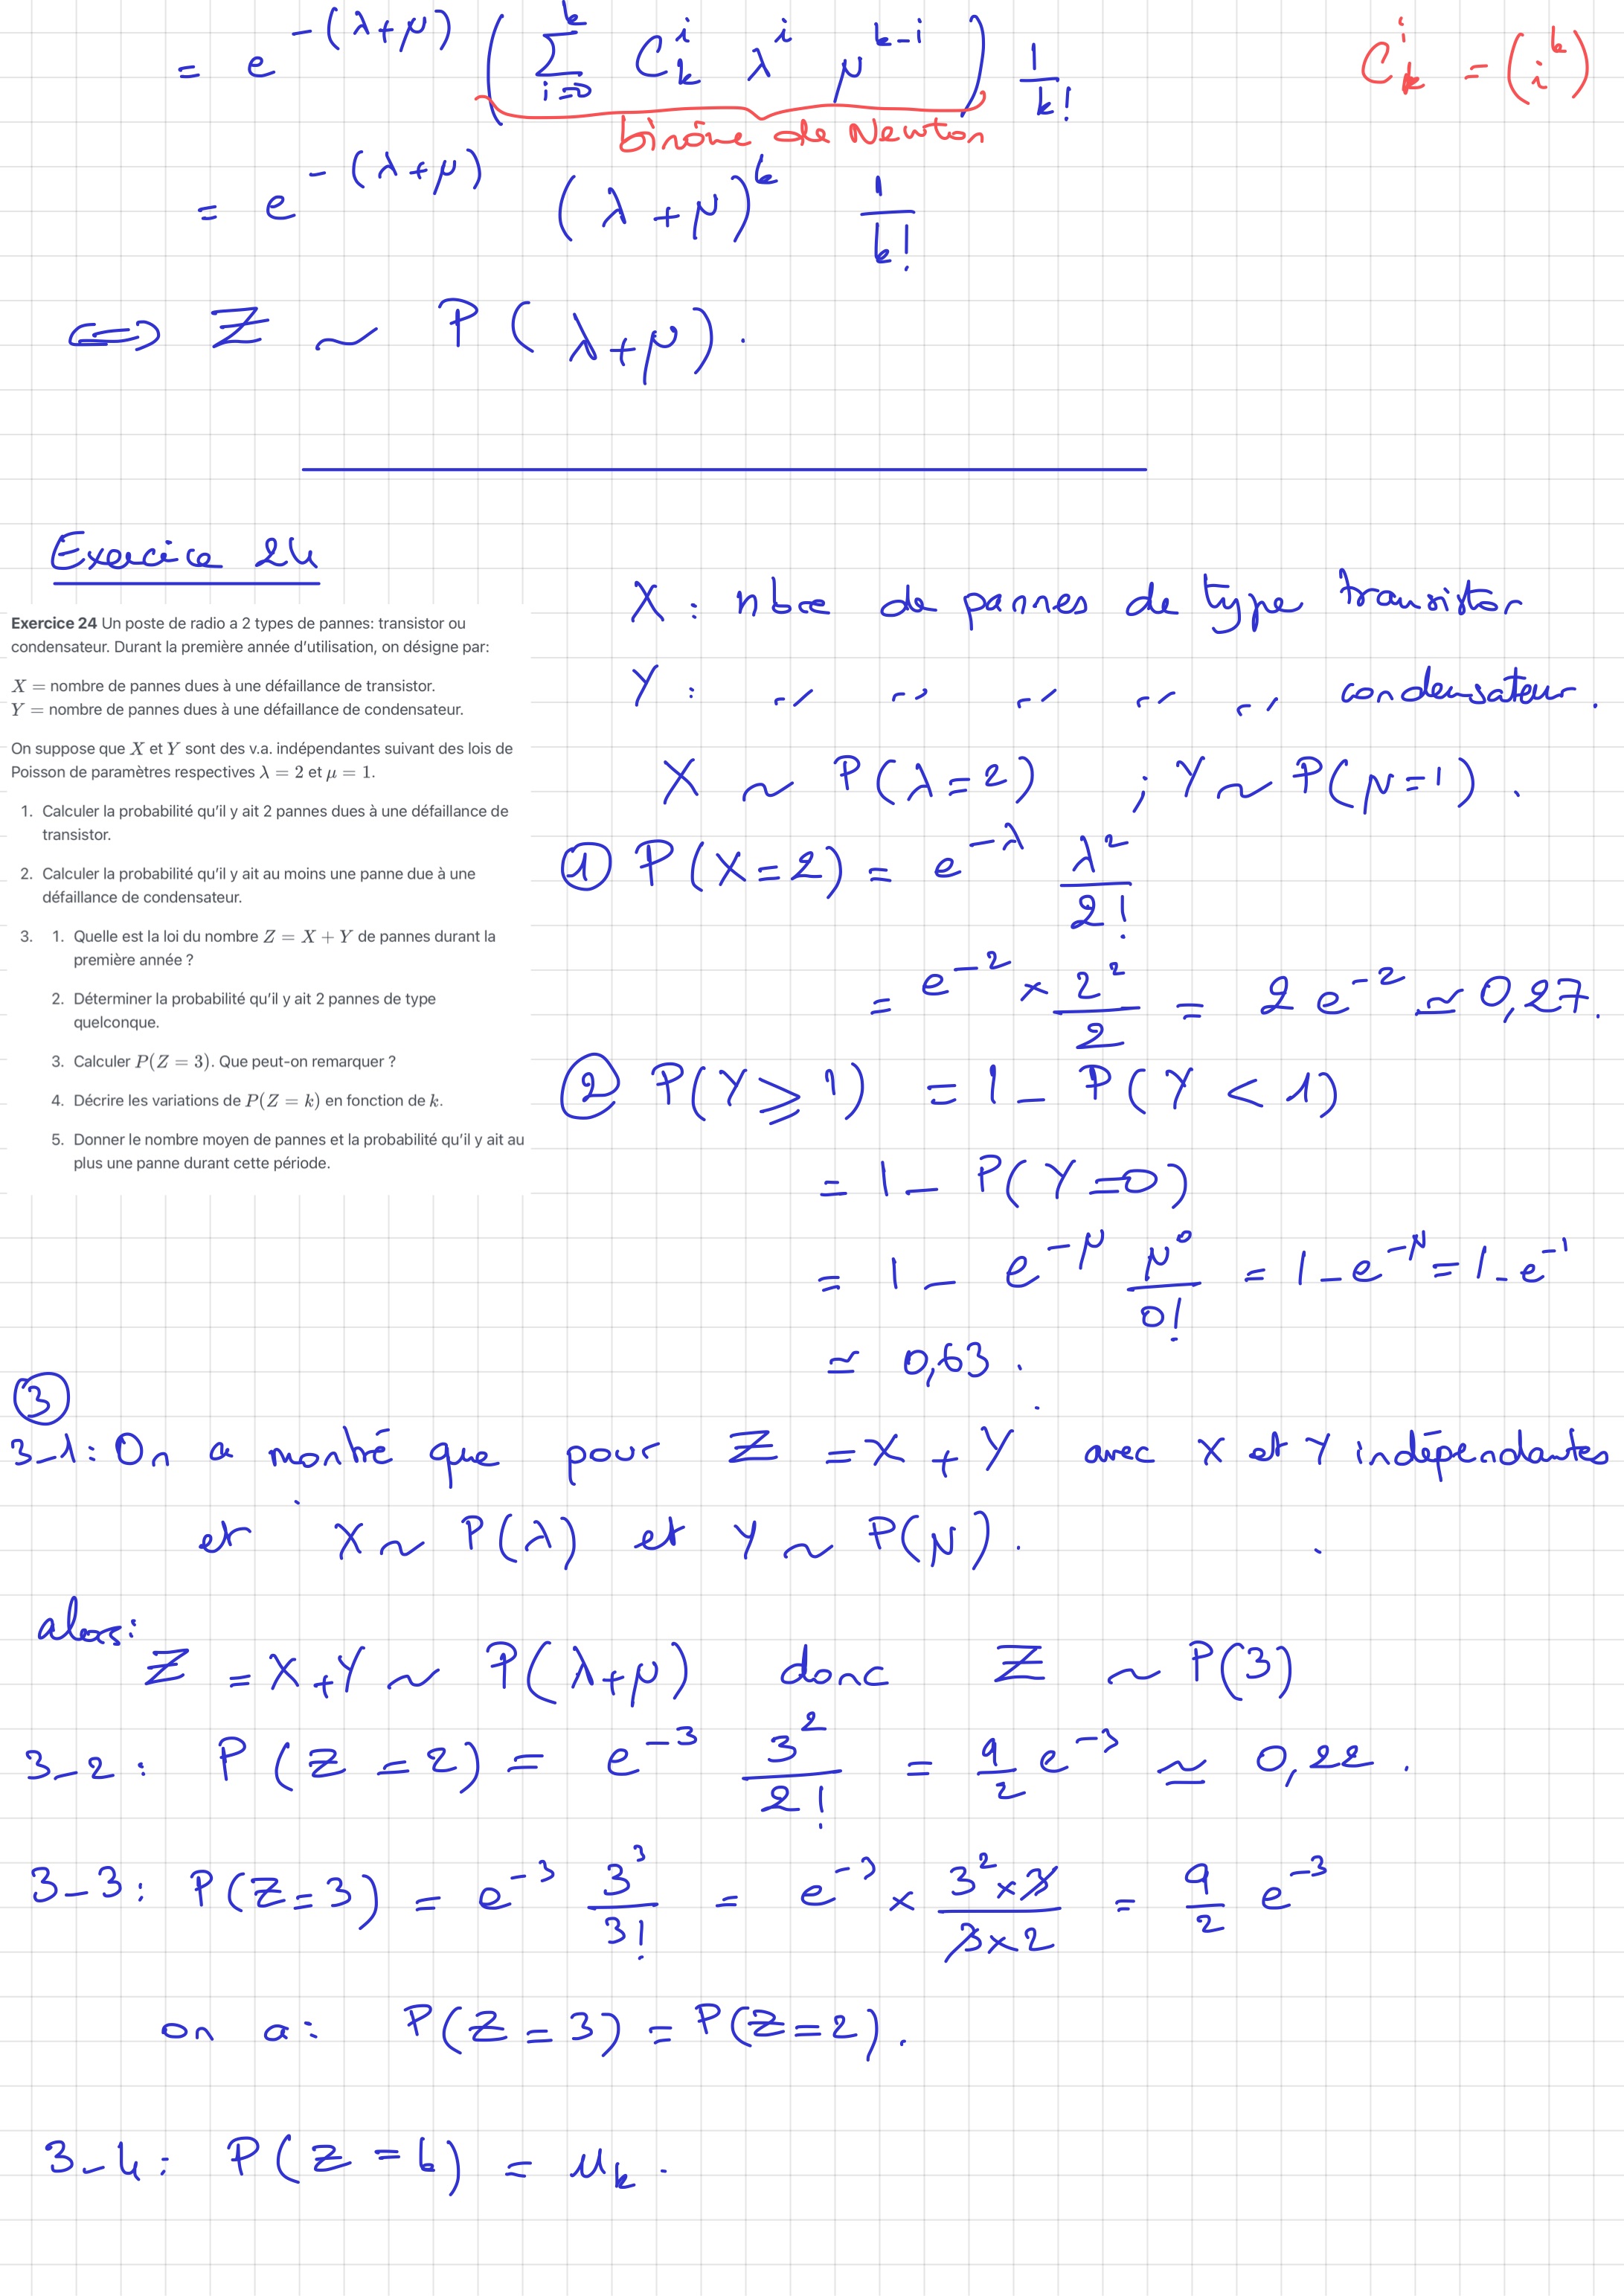 = e^{-(λ+μ)} ( ∑_{i=0}^{k} C_k^i λ^i μ^{k-i} ) 1/k!
C_k^i = (_i^k)
binôme de Newton
= e^{-(λ+μ)} (λ+μ)^k 1/k!
⇔ Z ~ P(λ+μ).
Exercice 24
Exercice 24 Un poste de radio a 2 types de pannes: transistor ou
condensateur. Durant la première année d'utilisation, on désigne par:
X = nombre de pannes dues à une défaillance de transistor.
Y = nombre de pannes dues à une défaillance de condensateur.
On suppose que X et Y sont des v.a. indépendantes suivant des lois de
Poisson de paramètres respectives λ = 2 et μ = 1.
1. Calculer la probabilité qu'il y ait 2 pannes dues à une défaillance de
transistor.
2. Calculer la probabilité qu'il y ait au moins une panne due à une
défaillance de condensateur.
3. 1. Quelle est la loi du nombre Z = X + Y de pannes durant la
première année ?
2. Déterminer la probabilité qu'il y ait 2 pannes de type
quelconque.
3. Calculer P(Z = 3). Que peut-on remarquer ?
4. Décrire les variations de P(Z = k) en fonction de k.
5. Donner le nombre moyen de pannes et la probabilité qu'il y ait au
plus une panne durant cette période.
X : nbre de pannes de type transistor
Y : ,, ,, ,, ,, ,, condensateur.
X ~ P(λ=2) ; Y ~ P(μ=1).
① P(X=2) = e^{-λ} λ²/2!
= e^{-2} × 2²/2 = 2 e^{-2} ≃ 0,27.
② P(Y⩾1) = 1 - P(Y < 1)
= 1 - P(Y=0)
= 1 - e^{-μ} μ⁰/0! = 1-e^{-μ} = 1-e^{-1}
≃ 0,63.
③
3-1: On a montré que pour Z = X + Y avec X et Y indépendantes
et X ~ P(λ) et Y ~ P(μ).
alors:
Z = X+Y ~ P(λ+μ) donc Z ~ P(3)
3-2: P(Z=2) = e^{-3} 3²/2! = 9/2 e^{-3} ≃ 0,22.
3-3: P(Z=3) = e^{-3} 3³/3! = e^{-3} × 3²×3/3×2 = 9/2 e^{-3}
on a: P(Z=3) = P(Z=2).
3-4: P(Z=k) = u_k.